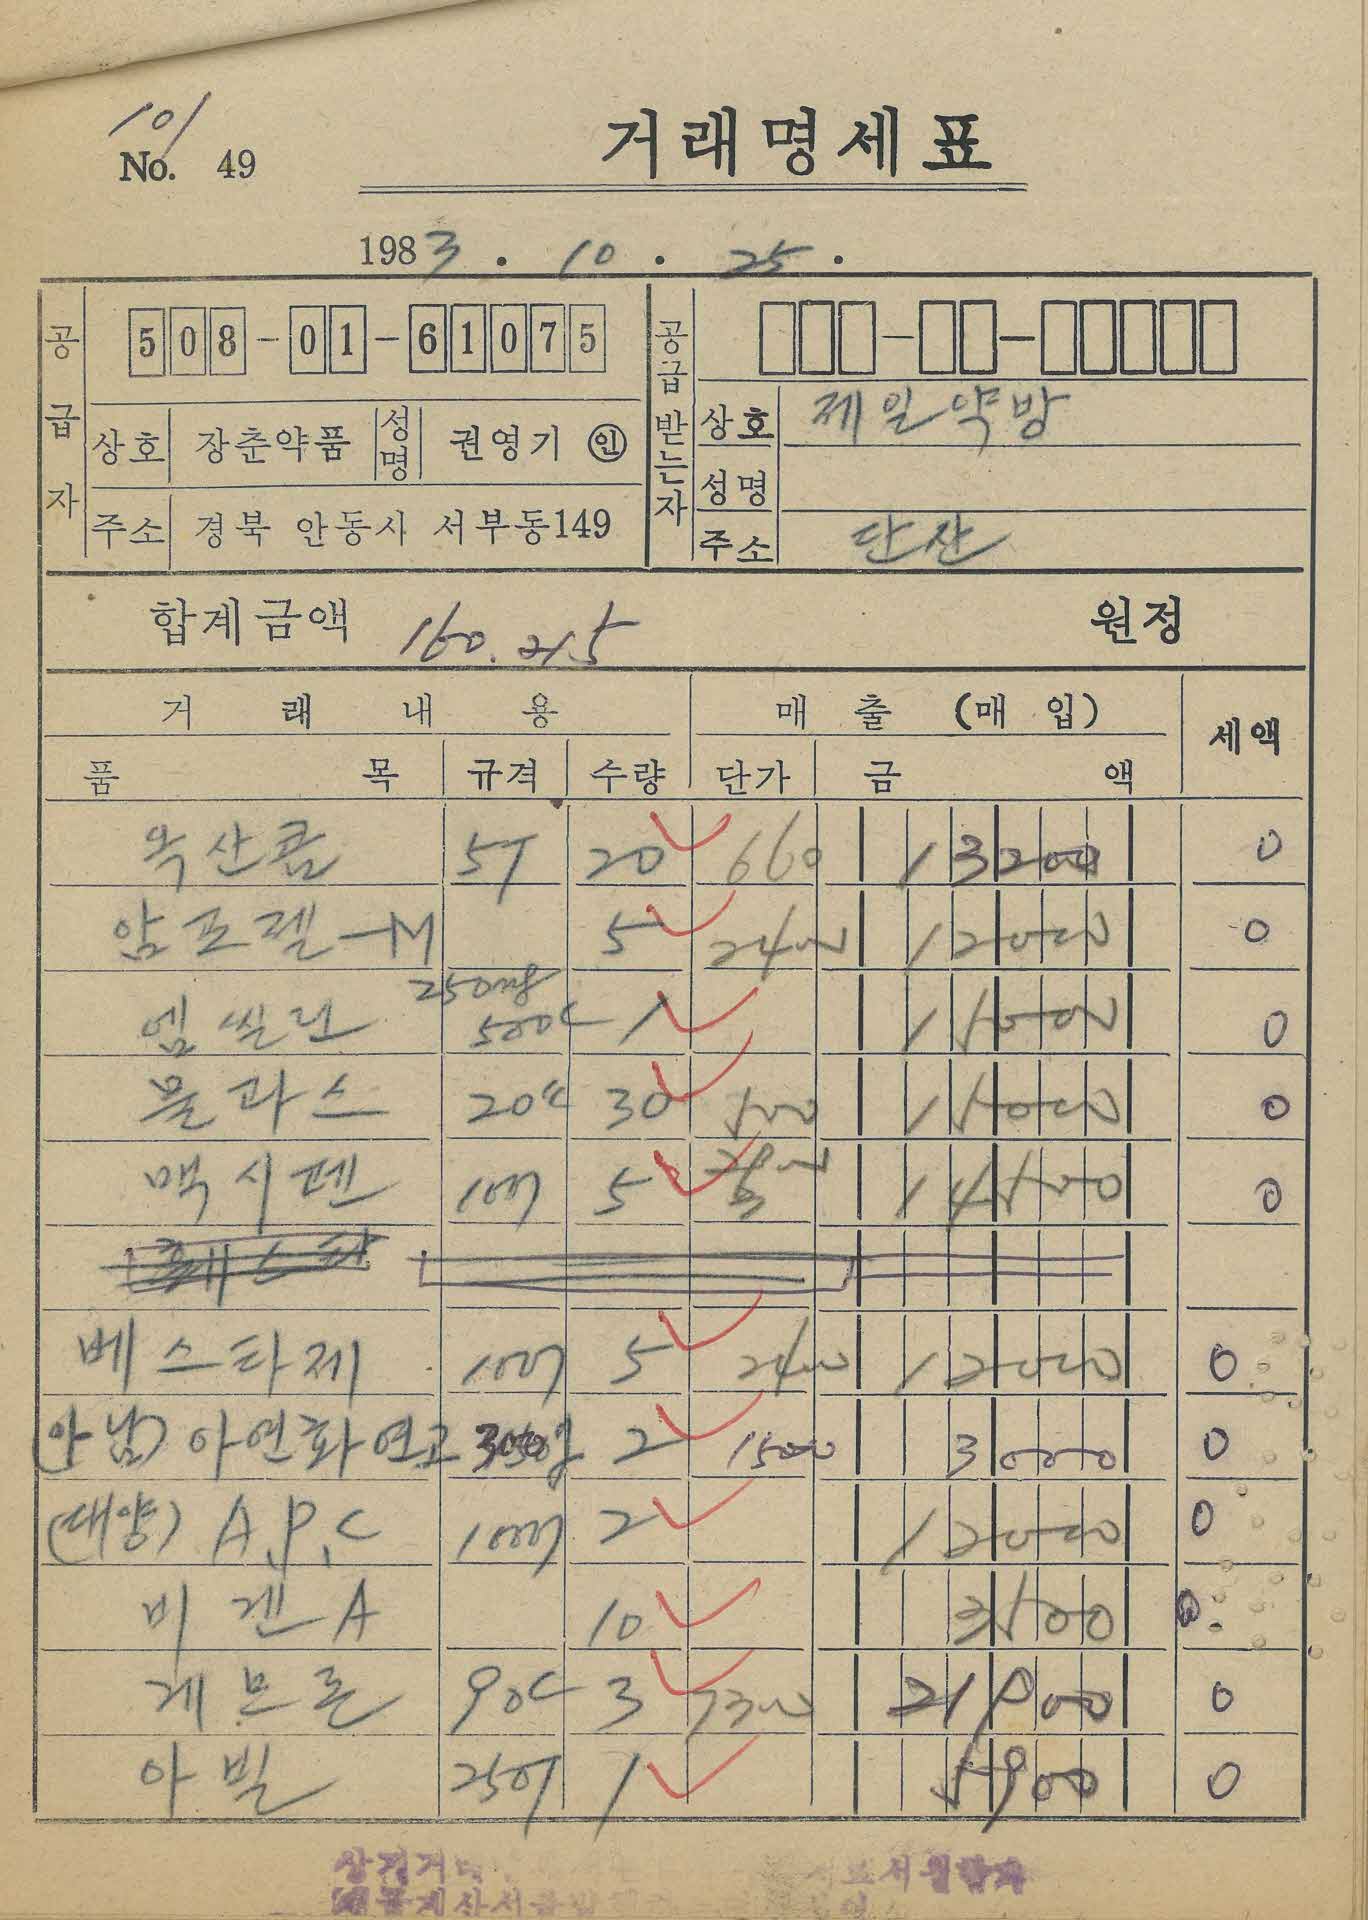 101
No. 49
거래명세표
1983 . 10 . 25 .
공급자
508-01-61075
상호 장춘약품 성명 권영기 ㊞
주소 경북 안동시 서부동149
공급받는자
상호 제일약방
성명
주소 단산
합계금액 160.215 원정
거래내용 매출 (매입) 세액
품목 규격 수량 단가 금액
옥산콤 5T 20 660 13200 0
암포젤-M 5 2400 12000 0
엠씰린 250mg 500C 1 15000 0
물파스 20cc 30 500 15000 0
맥시펜 100T 5 14500 0
베스타제 100T 5 2400 12000 0
(아남) 아연화연고 2 1500 3000 0
(대양) A.P.C 1000T 2 12000 0
비겐 A 10 3500 0
게므론 90C 3 7300 21900 0
아빌 250T 1 5900 0